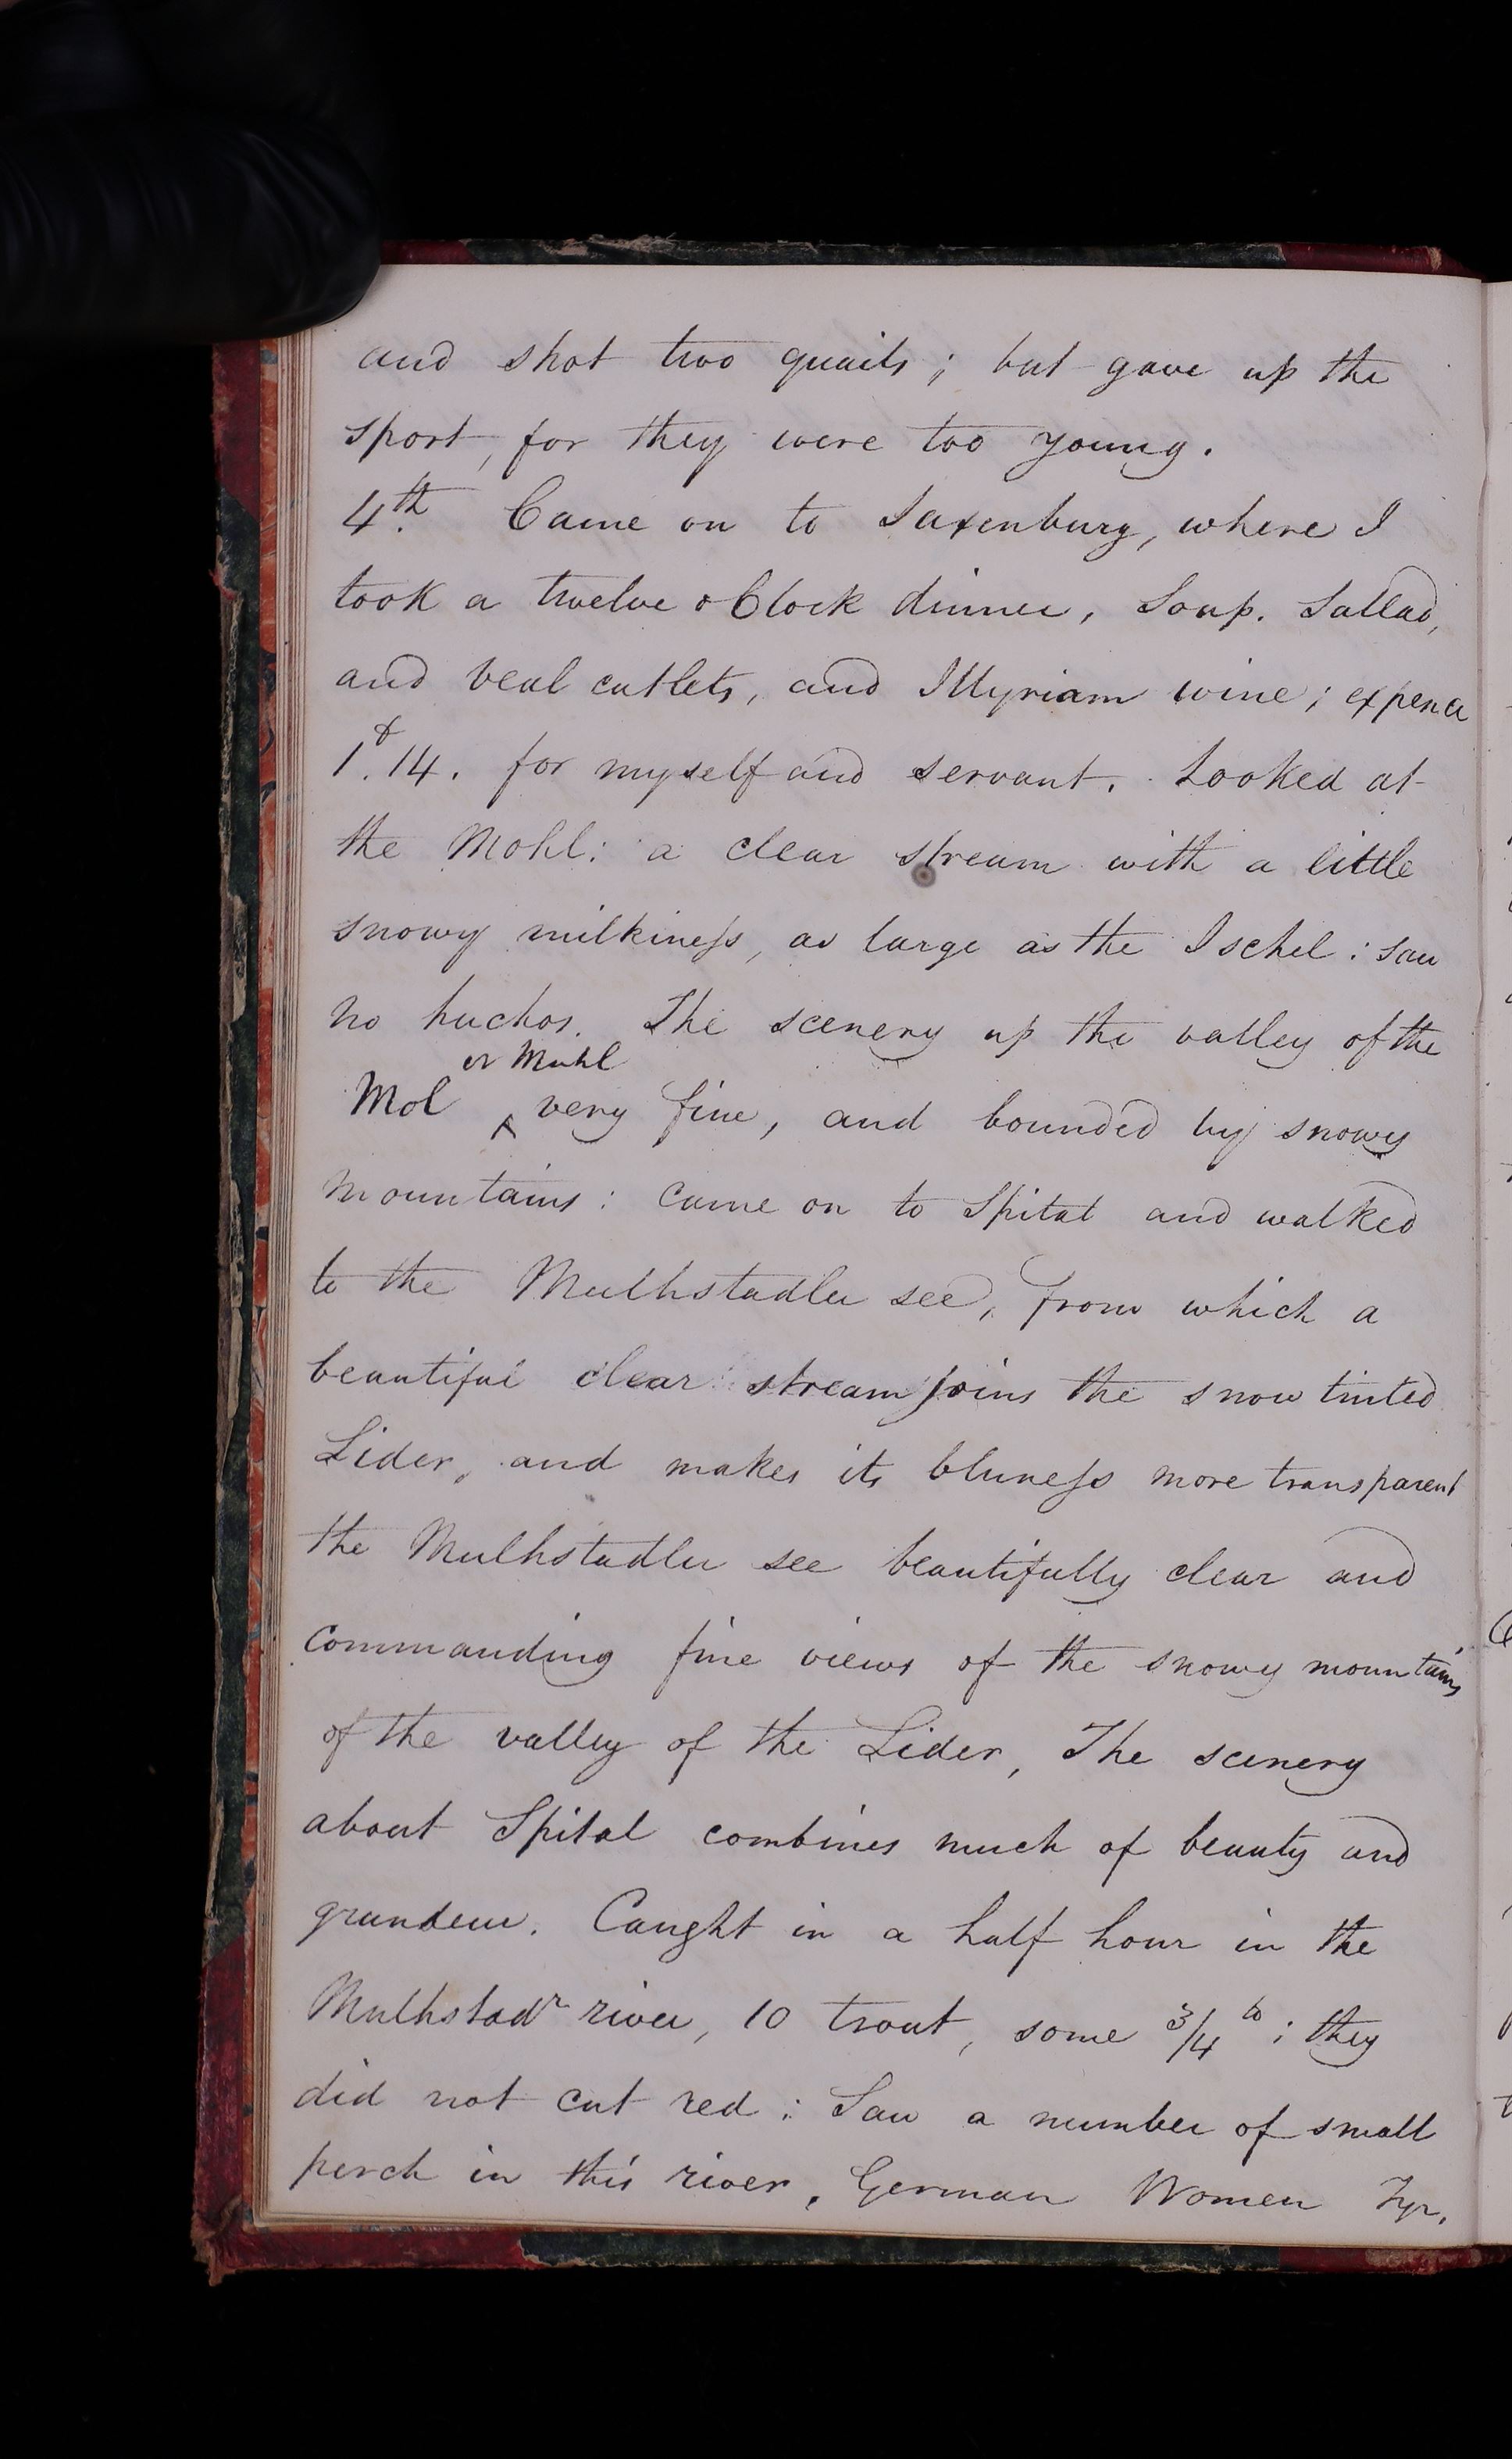 and shot two quails; but gave up the
sport, for they were too young.
4th. Came on to Saxenburg, where I
took a twelve oClock dinner, Soup. Sallad,
and veal cutlets, and Illyriam wine; expence
1f. 14. for myself and servant. Looked at
the Mohl: a clear stream with a little
snowy milkiness, as large as the Ischel: saw
no huchos. The scenery up the valley of the
or Muhl
Mol ^ very fine, and bounded by snowy
mountains: came on to Spital and walked
to the Mulhstadler see, from which a
beautiful clear stream joins the snow tinted
Lider, and makes its bluness more transparent
the Mulhstadler see beautifully clear and
commanding fine views of the snowy mountains
of the valley of the Lider, The scenery
about Spital combines much of beauty and
grandeur. Caught in a half hour in the
Mulhstadr river, 10 trout, some 3/4 lb; they
did not cut red: Saw a number of small
perch in this river, German Women Tyr.